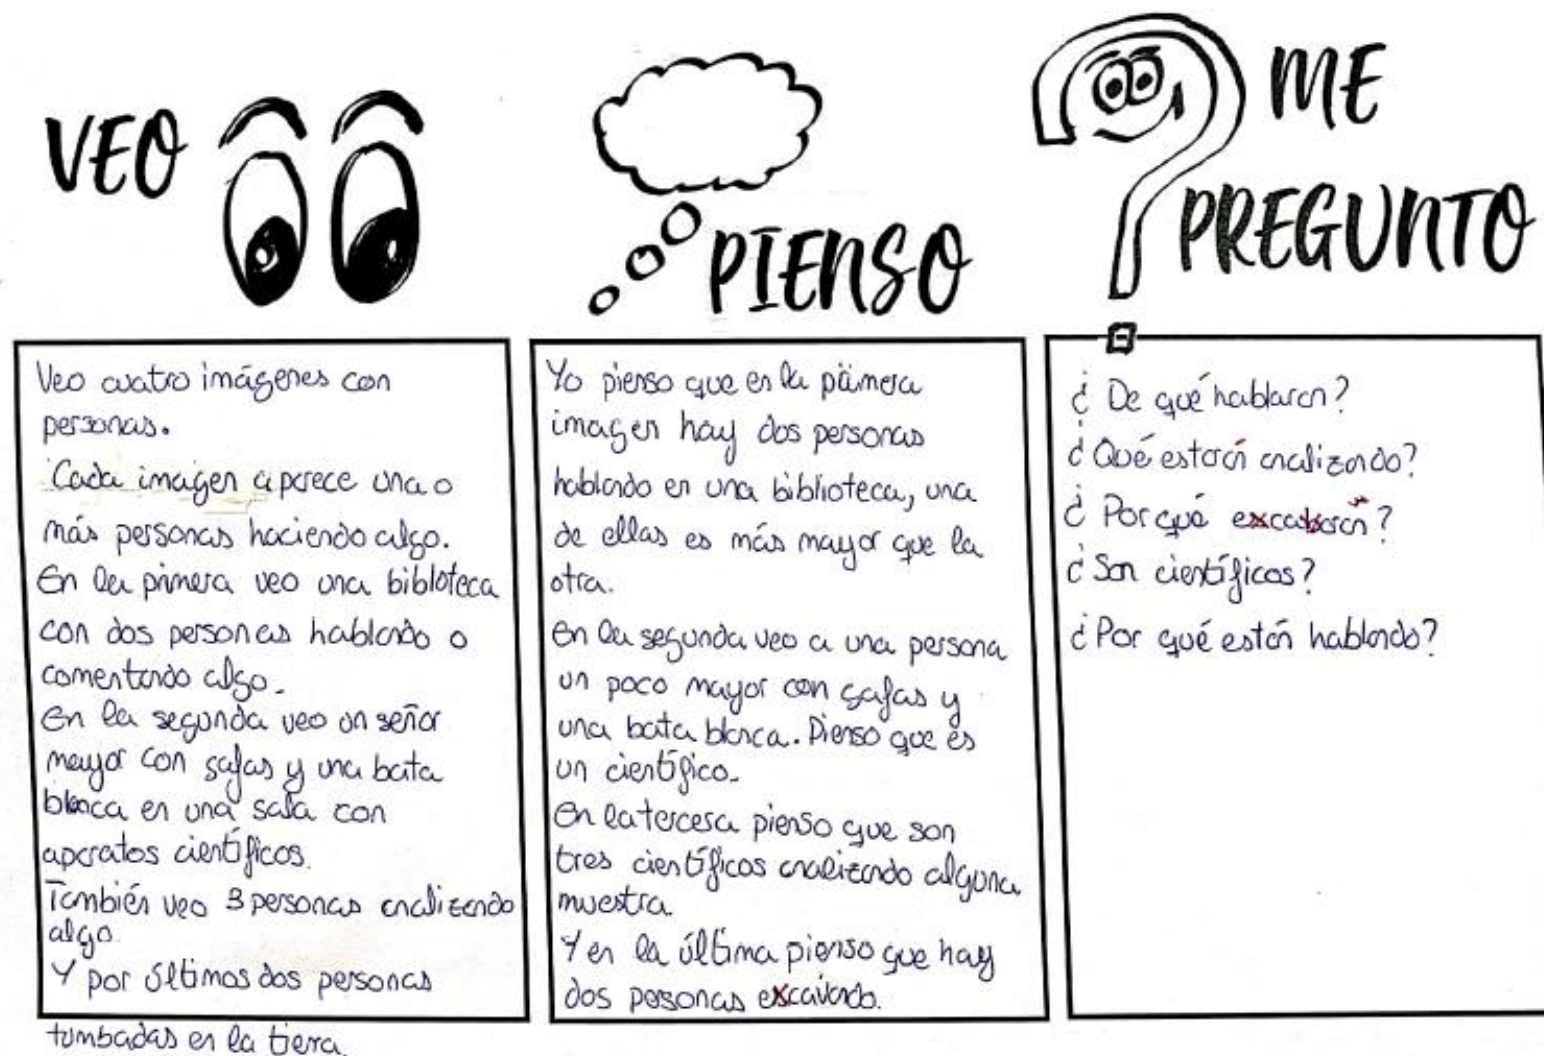 VEO
PIENSO
ME
PREGUNTO
Veo cuatro imágenes con
personas.
Cada imagen aparece una o
más personas haciendo algo.
En la primera veo una bibloteca
con dos personas hablando o
comentando algo.
En la segunda veo un señor
mayor con gafas y una bata
blanca en una sala con
aparatos científicos.
También veo 3 personas analizando
algo.
Y por últimos dos personas
tumbadas en la tierra.
Yo pienso que en la primera
imagen hay dos personas
hablando en una biblioteca, una
de ellas es más mayor que la
otra.
En la segunda veo a una persona
un poco mayor con gafas y
una bata blanca. Pienso que es
un científico.
En la tercera pienso que son
tres científicos analizando alguna
muestra.
Y en la última pienso que hay
dos personas excavando.
¿De qué hablaran?
¿Qué estarán analizando?
¿Por qué excabarán?
¿Son científicos?
¿Por qué están hablando?